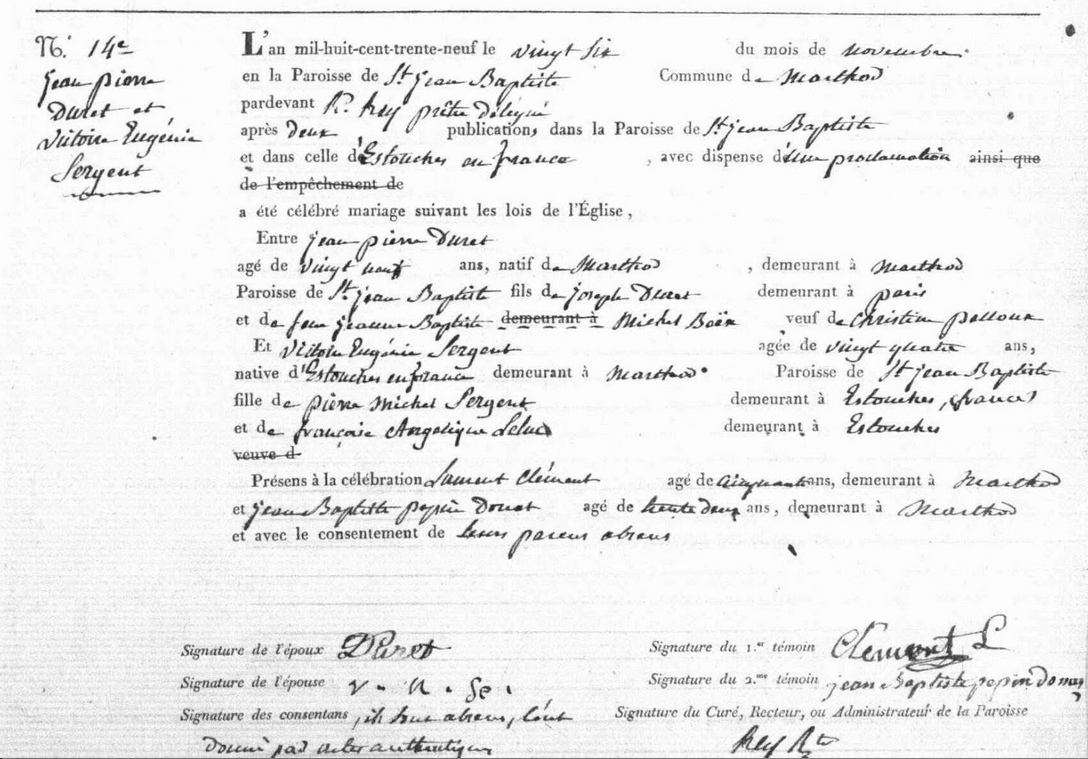 N.° 14e
jean pierre
Duret et
Victoire Eugénie
Sergent
L'an mil-huit-cent-trente-neuf le vingt six du mois de novembre
en la Paroisse de St jean Baptiste Commune de Marthod
pardevant Rd. Rey prêtre délégué
après deux publications dans la Paroisse de St jean Baptiste
et dans celle d'Estouches en france, avec dispense d'une proclamation ainsi que
de l'empêchement de
a été célébré mariage suivant les lois de l'Église,
Entre jean pierre Duret
agé de vingt neuf ans, natif de Marthod, demeurant à Marthod
Paroisse de St. jean Baptiste fils de joseph Duret demeurant à paris
et de feue jeanne Baptiste demeurant à Michel Boëx veuf de Christine pelloux
Et Victoire Eugénie Sergent agée de vingt quatre ans,
native d'Estouches en france demeurant à Marthod. Paroisse de St jean Baptiste
fille de pierre michel Sergent demeurant à Estouches, (france)
et de françoise Angelique demeurant à Estouches
veuve d
Présens à la célébration Laurent Clément agé de cinquante ans, demeurant à Marthod
et jean Baptiste pepin Donat agé de trente deux ans, demeurant à Marthod
et avec le consentement de leurs parens absens
Signature de l'époux Duret
Signature de l'épouse v. u. se.
Signature des consentans, ils sont absens, l'ont
donné par actes authentiques
Signature du 1.er témoin Clement L
Signature du 2.me témoin jean Baptiste pepin donat
Signature du Curé, Recteur, ou Administrateur de la Paroisse
Rey Rte